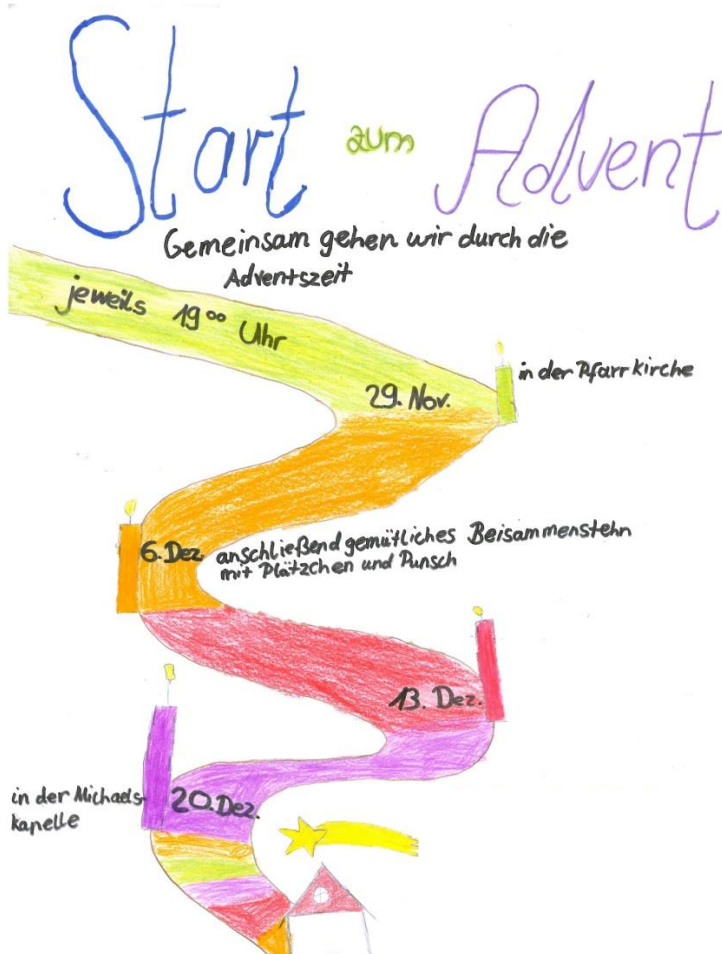 Start zum Advent
Gemeinsam gehen wir durch die
Adventszeit
jeweils 19⁰⁰ Uhr
in der Pfarrkirche
29. Nov.
6. Dez. anschließend gemütliches Beisammenstehn
mit Plätzchen und Punsch
13. Dez.
in der Michaels-
kapelle
20. Dez.